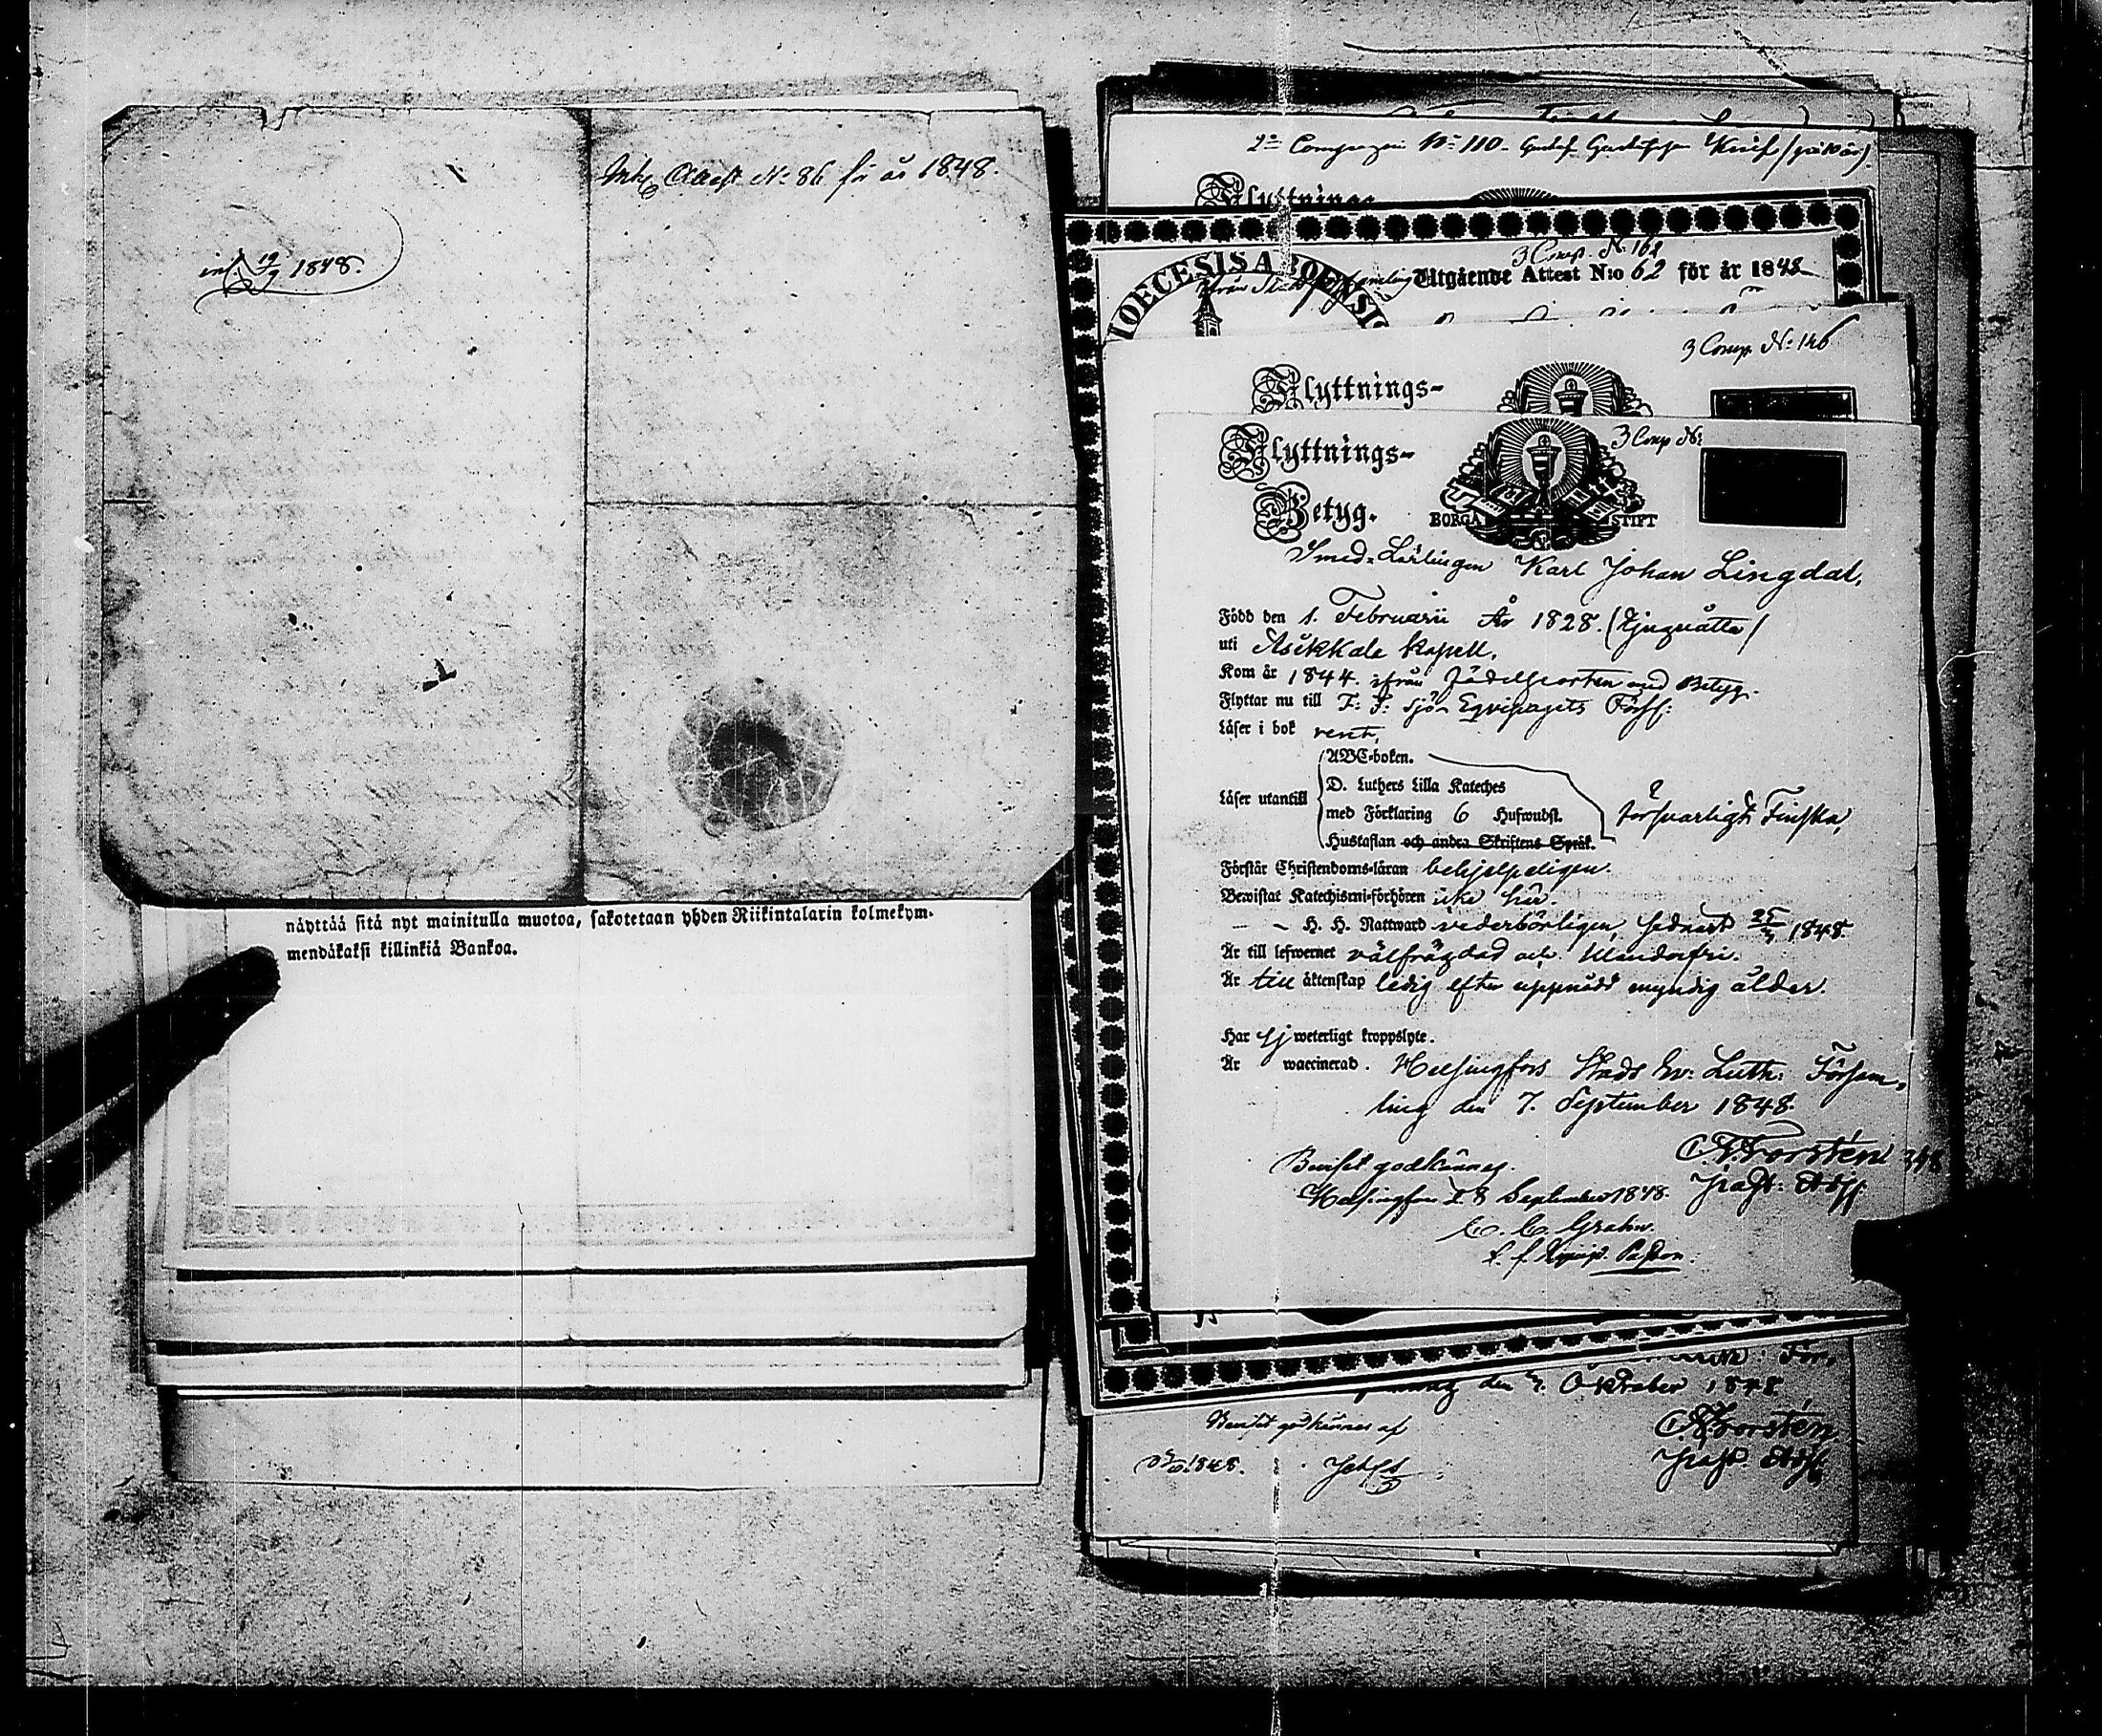 Ink. Attest No 86 för år 1848.
inl. 19/9 1848.
näyttää sitä nyt mainitulla muotoa, sakotetaan yhden Riikintalarin kolmekym-
mendäkaksi killinkiä Bankoa.
2 Compagni No 110. Gustaf
Flyttnings
3 Comp. N. 162
Utgående Attest N:o 62 för år 1848
DIOECESIS ABOENSIS
3 Comp. N: 146
Flyttnings-
3 Comp N:
Flyttnings-
Betyg.
BORGÅ STIFT
Smed-Lärlingen Karl Johan Lingdal,
Född den 1. Februarii År 1828. (tjuguåtta)
uti Asikkala kapell.
Kom år 1844. ifrån födelseorten med Betyg.
Flyttar nu till F: F: sjö-Eqvipagets Förs:
Läser i bok rent,
ABC-boken.
D. Luthers Lilla Kateches
Läser utantill med Förklaring 6 Hufwudst. försvarligt Finska,
Hustaflan och andra Skriftens Språk.
Förstår Christendoms-läran behjelpeligen.
Bewistat Katechismi-förhören icke här.
— — H. H. Nattward vederbörligen, sednast 25/3 1848.
Är till lefwernet välfrägdad och
Är till äktenskap ledig efter uppnådd myndig ålder.
Har ej weterligt kroppslyte.
Är waccinerad. Helsingfors Stads Ev: Luth: Försam-
ling den 7. September 1848.
C. Forstén
Beviset godkännes.
Helsingfors d. 8 September 1848.
C. C. Grahn.
Pastor.
den 7. Oktober 1848
Beviset godkännes af
C. Forstén
1848.